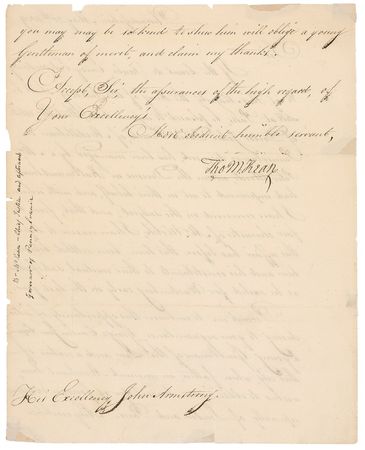 you may may be so kind to shew him will oblige a young
Gentleman of merit, and claim my thanks.
Accept, Sir, the assurances of the high regard, of
Your Excellency's
Most obedient humble servant,
Tho M:Kean
His Excellency John Armstrong.
Mr McKean - Chief Justice and afterwards
Governor of Pennsylvania